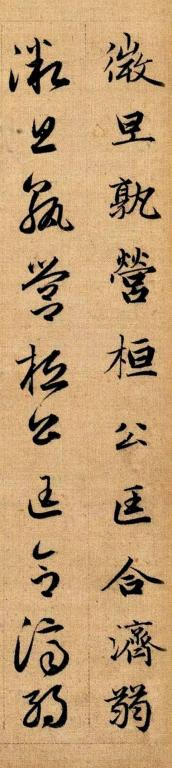 微旦孰營桓公匡合濟弱
微旦孰營桓公匡合濟弱